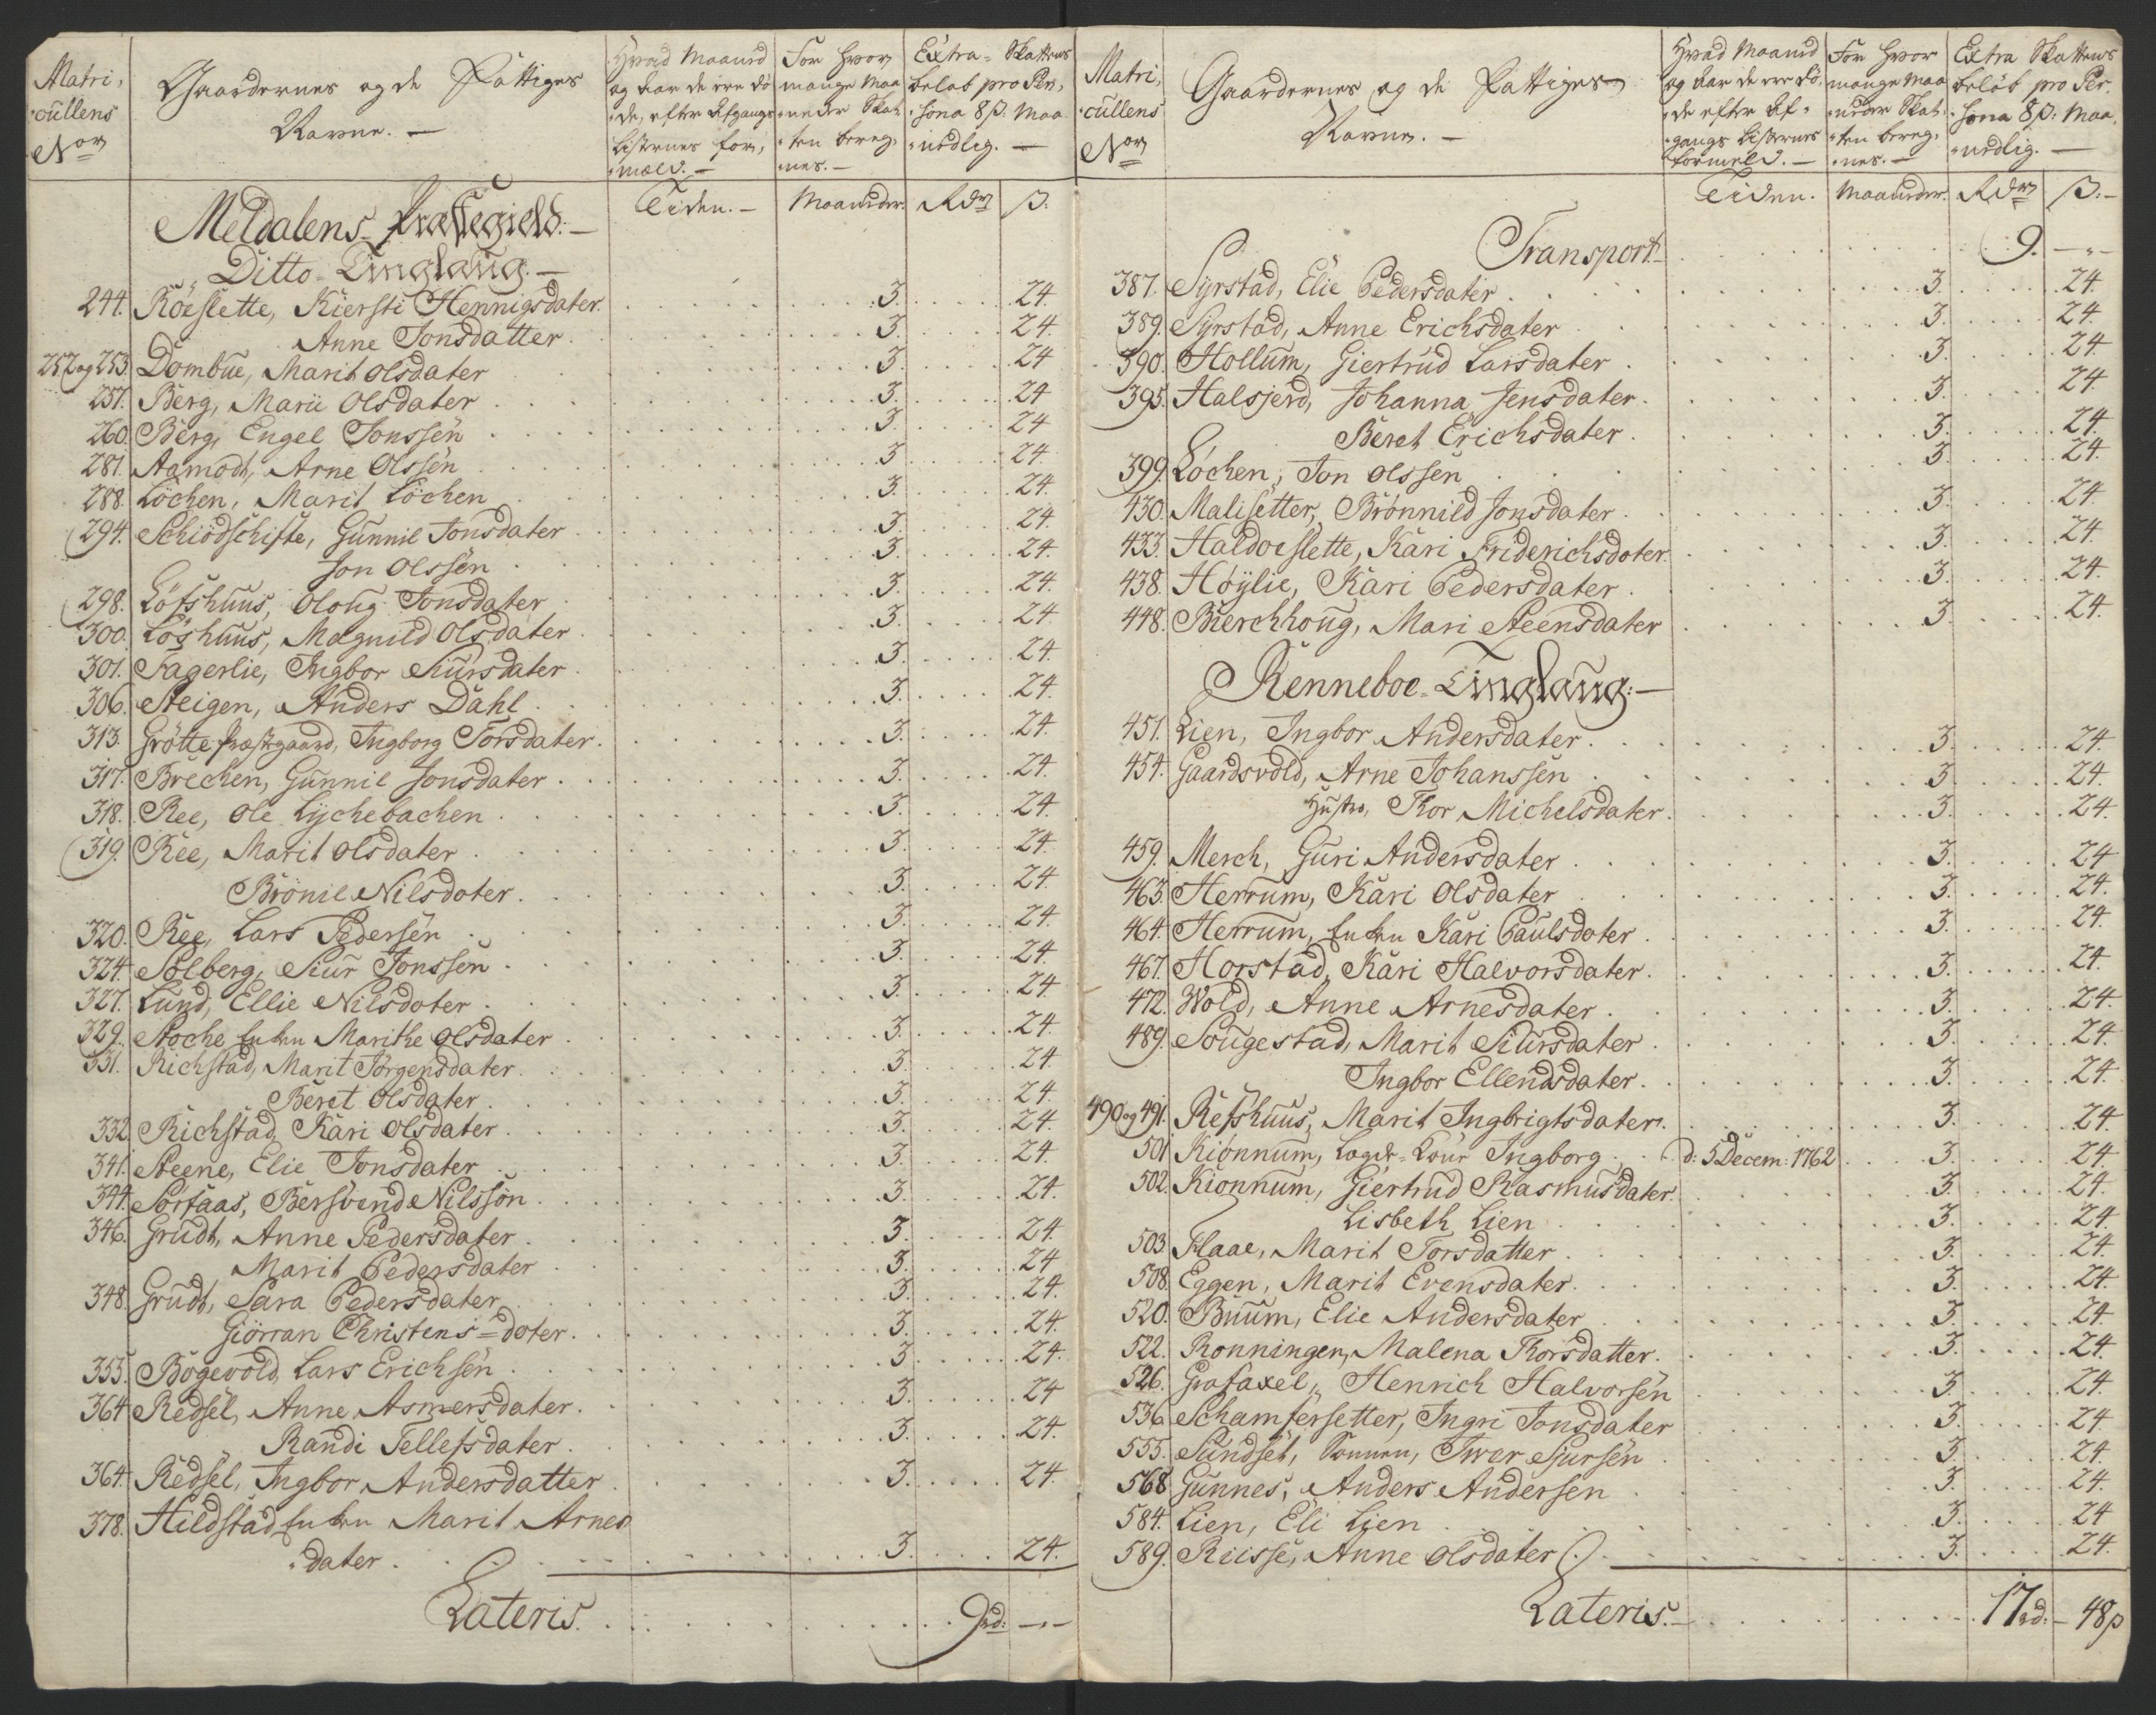 Matri,
cullens
Nor
Gaardernes og de Fattiges
Navne. —
Hvad Maaned
og Aar de ere dø
de, efter Afgangs
Listernes for,
mæld. —
For hvor
mange Maa
neder Skat
ten bereg,
nes. —
Extra- Skattens
beløb pro Per,
sona 8 β: Maa
nedlig. —
Tiden. —
Maaneder.
Rdr
β:
Meldalens Præstegield: —
Ditto Tinglaug. —
244. Röeslette, Kiersti Hennigsdater. 3. 24.
Anne Jonsdatter. 3. 24.
252 og 253. Dombue, Marit Olsdater 3. 24
257. Berg, Marii Olsdater 3. 24
260. Berg, Engel Jonssen 3. 24
281. Aamodt, Arne Olssen 3 24.
288. Löchen, Marit Löchen 3. 24.
294. Schiödschifte, Gunnil Jonsdater 3. 24.
Jon Olssen 3. 24.
298. Löfshuus, Oloug Jonsdater 3. 24.
300. Löshuus, Magnild Olsdater 3. 24.
301. Fagerlie, Ingbor Siursdater 3. 24.
306. Steigen, Anders Dahl 3. 24.
313. Grötte Præstgaard, Ingborg Torsdater. 3. 24.
317. Brechen, Gunnil Jonsdater 3. 24.
318. Ree, Ole Lychebachen 3. 24.
319. Ree, Marit Olsdater 3. 24.
Brönil Nilsdoter. 3. 24.
320. Ree, Lars Pedersen 3. 24.
324. Solberg, Siur Jonssen 3. 24.
327. Lund, Ellie Nilsdoter 3. 24.
329. Stoche Enken Marithe Olsdater 3. 24.
331. Richstad, Marit Jörgensdater. 3. 24.
Beret Olsdater 3. 24.
332. Richstad Kari Olsdater 3. 24.
341. Steene, Elie Jonsdater 3. 24.
344. Sorfaas, Bersvend Nilsson 3. 24.
346. Grudt, Anne Pedersdater 3. 24.
Marit Pedersdater 3. 24
348. Grudt, Sara Pedersdater 3. 24.
Giörran Christens-doter. 3. 24.
355. Bogevold, Lars Erichsen 3 24.
364 Redsel, Anne Asmersdater. 3. 24
Randi Tellefsdater. 3. 24.
364. Redsel, Ingbor Andersdatter 3. 24.
378. Hildstad Enken Marit Arnes
dater. 3. 24.
Lateris. 9 rd: —„—
Matri,
cullens
Nor
Gaardernes og de Fattiges
Navne. —
Hvad Maaned
og Aar de ere dø,
de efter Af-
gangs Listernes
formeld. —
For hvor
mange Maa
neder Skat,
ten bereg,
nes. —
Extra Skattens
beløb pro Per
sona 8 β: Maa,
nedlig. —
Tiden.
Maaneder.
Rdr
β: —
Transport 9. —„—
387. Syrstad, Elie Pedersdater 3. 24.
389. Syrstad, Anne Erichsdater 3. 24.
390. Hollum, Giertrud Larsdater 3. 24.
395. Halsjerd, Johanna Jensdater. 3. 24
Beret Erichsdater. 3. 24.
399. Löchen, Jon Olssen 3. 24.
430. Malisetter, Brönnild Jonsdater. 3. 24.
433. Haldoeslette, Kari Friderichsdoter. 3. 24.
438. Höylie, Kari Pedersdater 3. 24.
448. Bierchhoug, Mari Steensdater 3 24.
Renneboe Tinglaug: —
451. Lien, Ingbor Andersdater. 3. 24.
454. Gaardsvold, Arne Johanssen 3. 24.
Hustro, Thor Michelsdater. 3. 24.
459. Merch, Guri Andersdater 3. 24
463. Herrum, Kari Olsdater 3. 24.
464. Herrum, Enken Kari Paulsdoter. 3. 24.
467. Horstad, Kari Halvorsdater. 3. 24.
472. Wold, Anne Arnesdater. 3. 24.
489. Sougestad, Marit Siursdater. 3. 24.
Ingbor Ellendsdater. 3. 24.
490 og 491. Refshuus, Marit Ingbrigtsdater. 3. 24.
501 Kiönnum, Ingborg d: 5 Decem: 1762 3. 24.
502. Kiönnum, Giertrud Rasmusdater. 3. 24.
Lisbeth Lien 3. 24.
503 Flaae, Marit Torsdatter 3. 24.
508. Eggen, Marit Evensdater. 3. 24.
520. Buum, Elie Andersdater 3. 24.
522. Ronningen, Malena Thorsdatter. 3. 24.
526. Grafaxel, Henrich Halvorsen 3. 24.
536 Schamfersetter, Ingri Jonsdater 3. 24.
555. Sundset, Iwer Sjursen 3. 24.
568 Gunnes, Anders Andersen 3. 24.
584. Lien, Eli Lien 3. 24
589. Riisse, Anne Olsdater 3. 24.
Lateris. — 17 rd: — 48 β